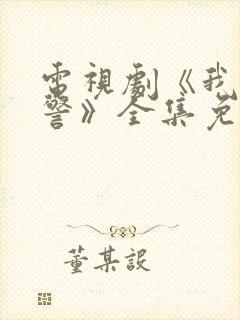 電視劇《我
警》全集免
董某設